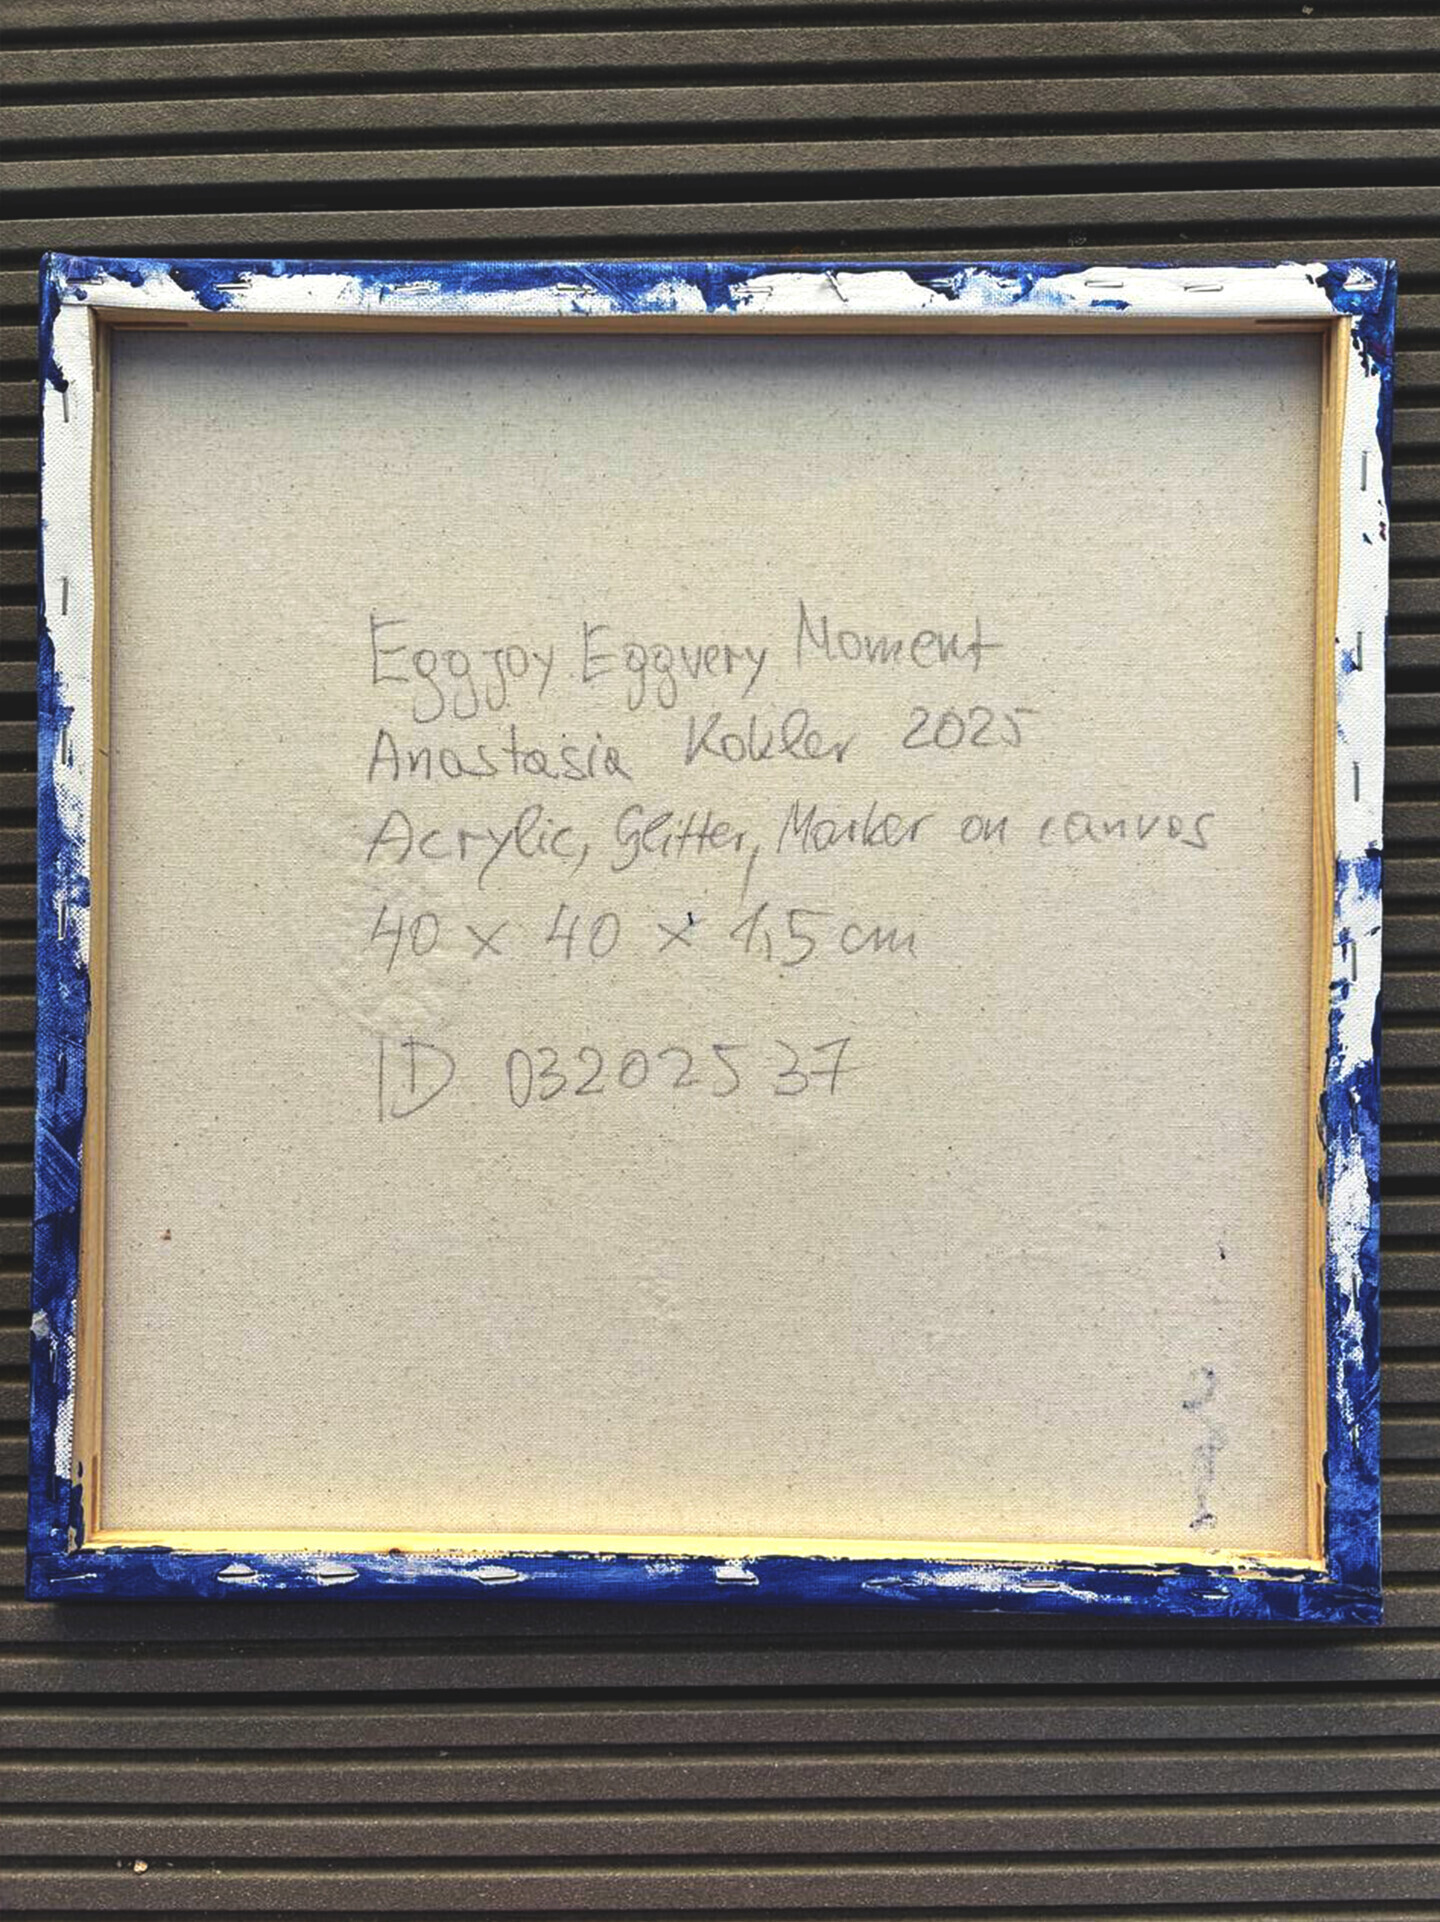 Eggjoy Eggvery Moment
Anastasia Kokler 2025
Acrylic, Glitter, Marker on canvas
40 x 40 x 1,5 cm
ID 03202537